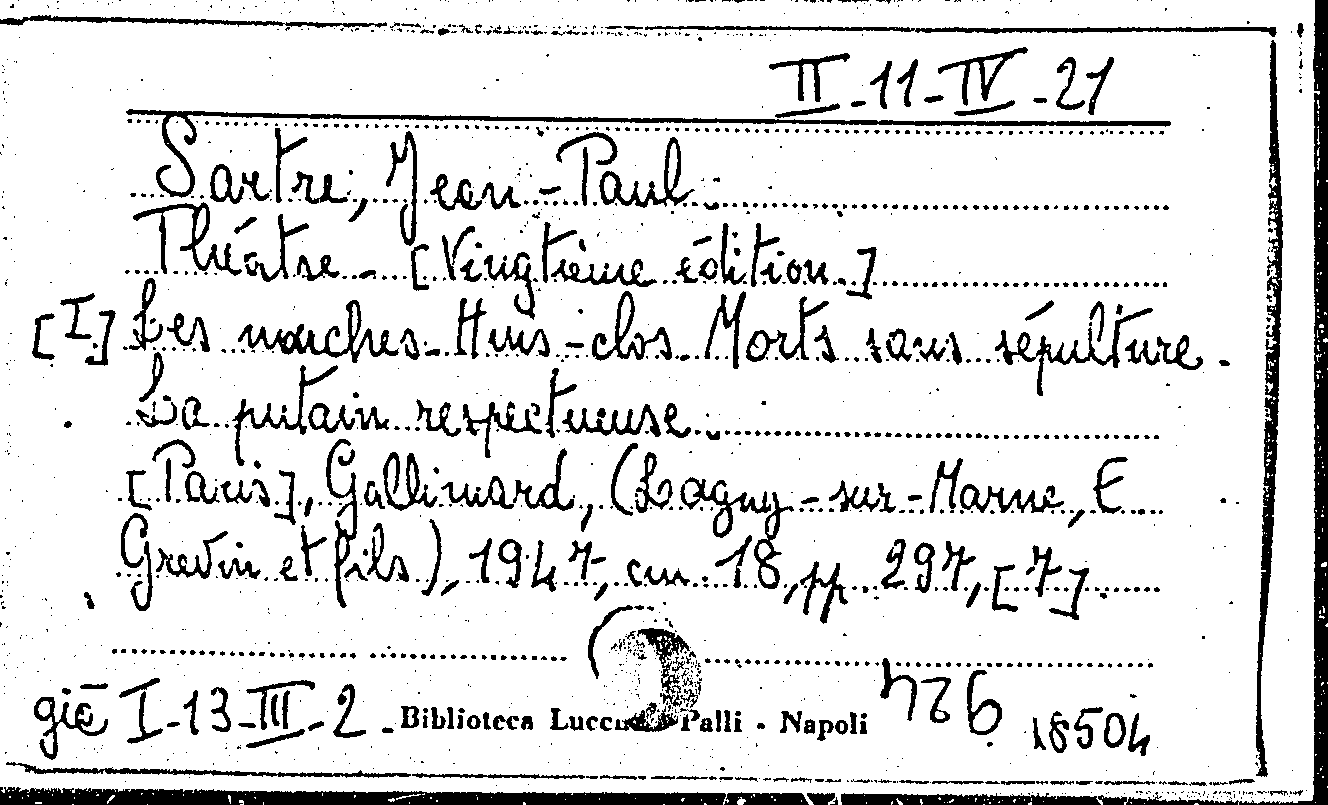 II-11-IV-21
Sartre, Jean-Paul.
Théâtre - [Vingtième édition.]
[I] Les mouches - Huis-clos. Morts sans sépulture.
La putain respectueuse.
[Paris], Gallimard, (Lagny-sur-Marne, E
Grevin et fils), 1947, cm. 18, pp. 297, [7].
già I-13-III-2 - Biblioteca Lucchesi Palli - Napoli
18504